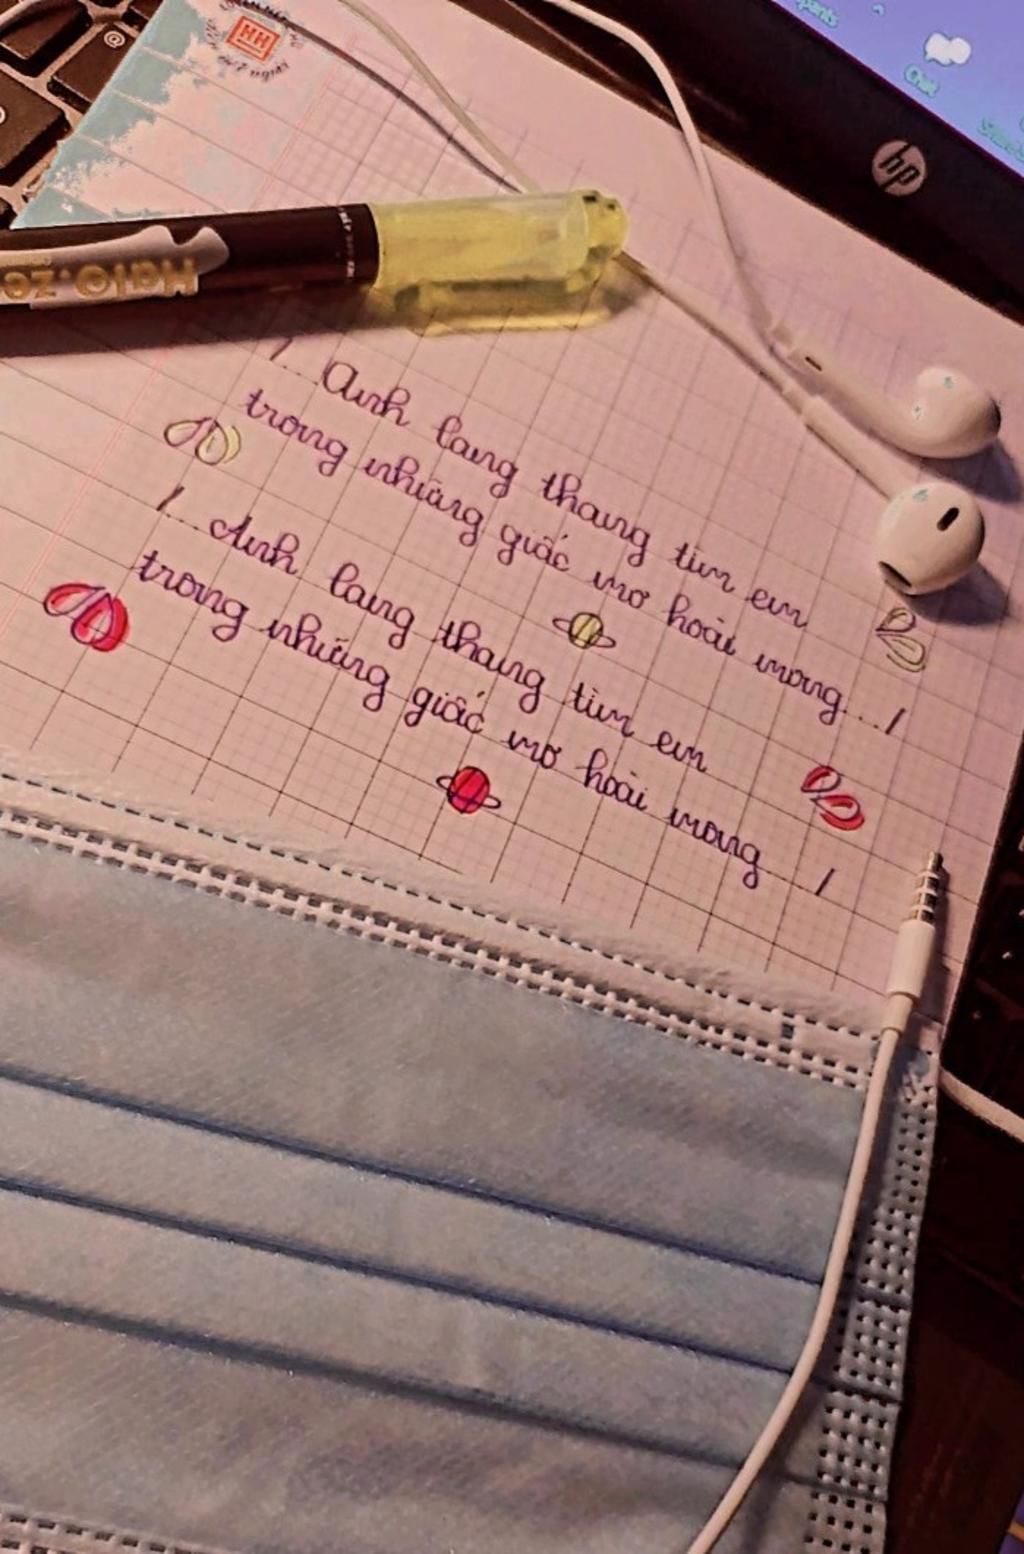 Chat
hp
HH
Halo.ze
/... Anh lang thang tìm em
trong những giấc mơ hoài mong.../
/... Anh lang thang tìm em
trong những giấc mơ hoài mong /